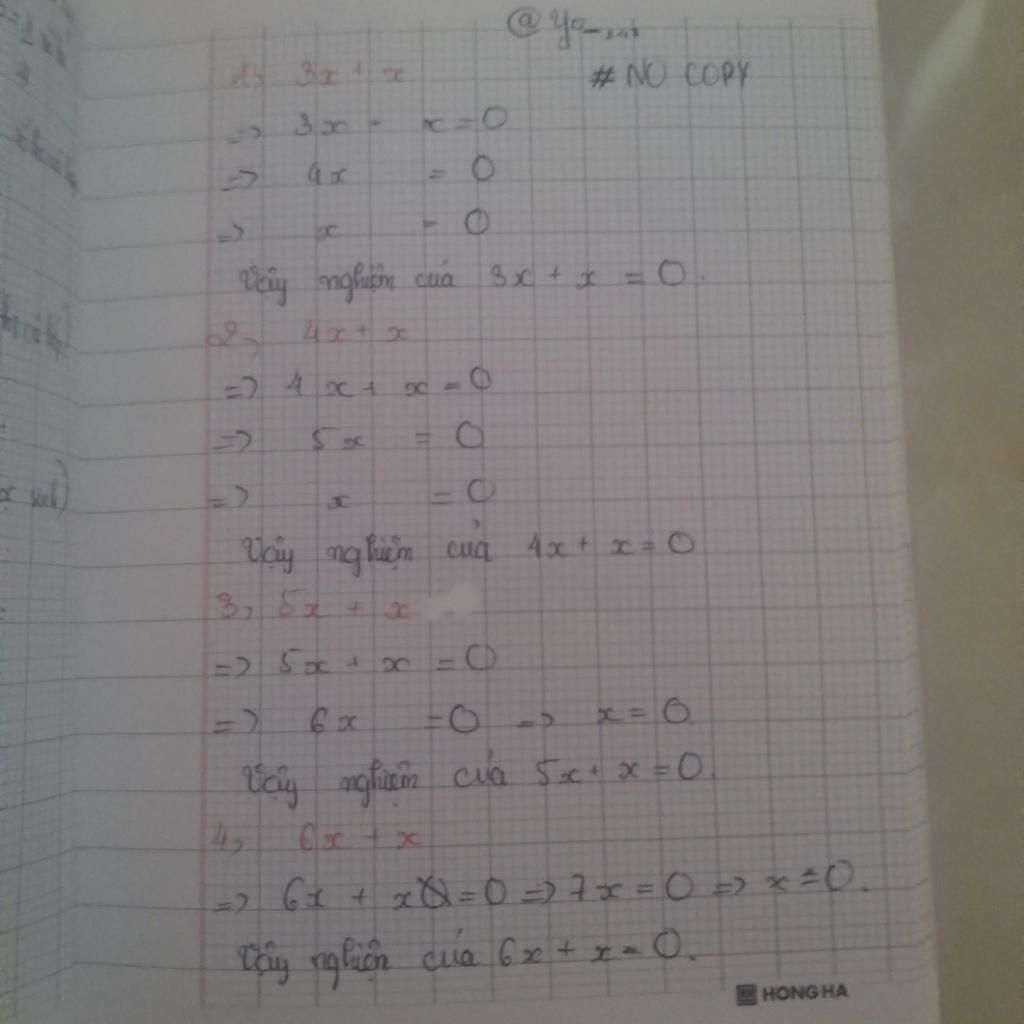 # NO COPY
1, 3x + x
=> 3x + x = 0
=> 4x = 0
=> x = 0
Vậy nghiệm của 3x + x = 0.
2, 4x + x
=> 4x + x = 0
=> 5x = 0
=> x = 0
Vậy nghiệm của 4x + x = 0
3, 5x + x
=> 5x + x = 0
=> 6x = 0 => x = 0
Vậy nghiệm của 5x + x = 0.
4, 6x + x
=> 6x + x = 0 => 7x = 0 => x = 0.
Vậy nghiệm của 6x + x = 0.
HONG HA